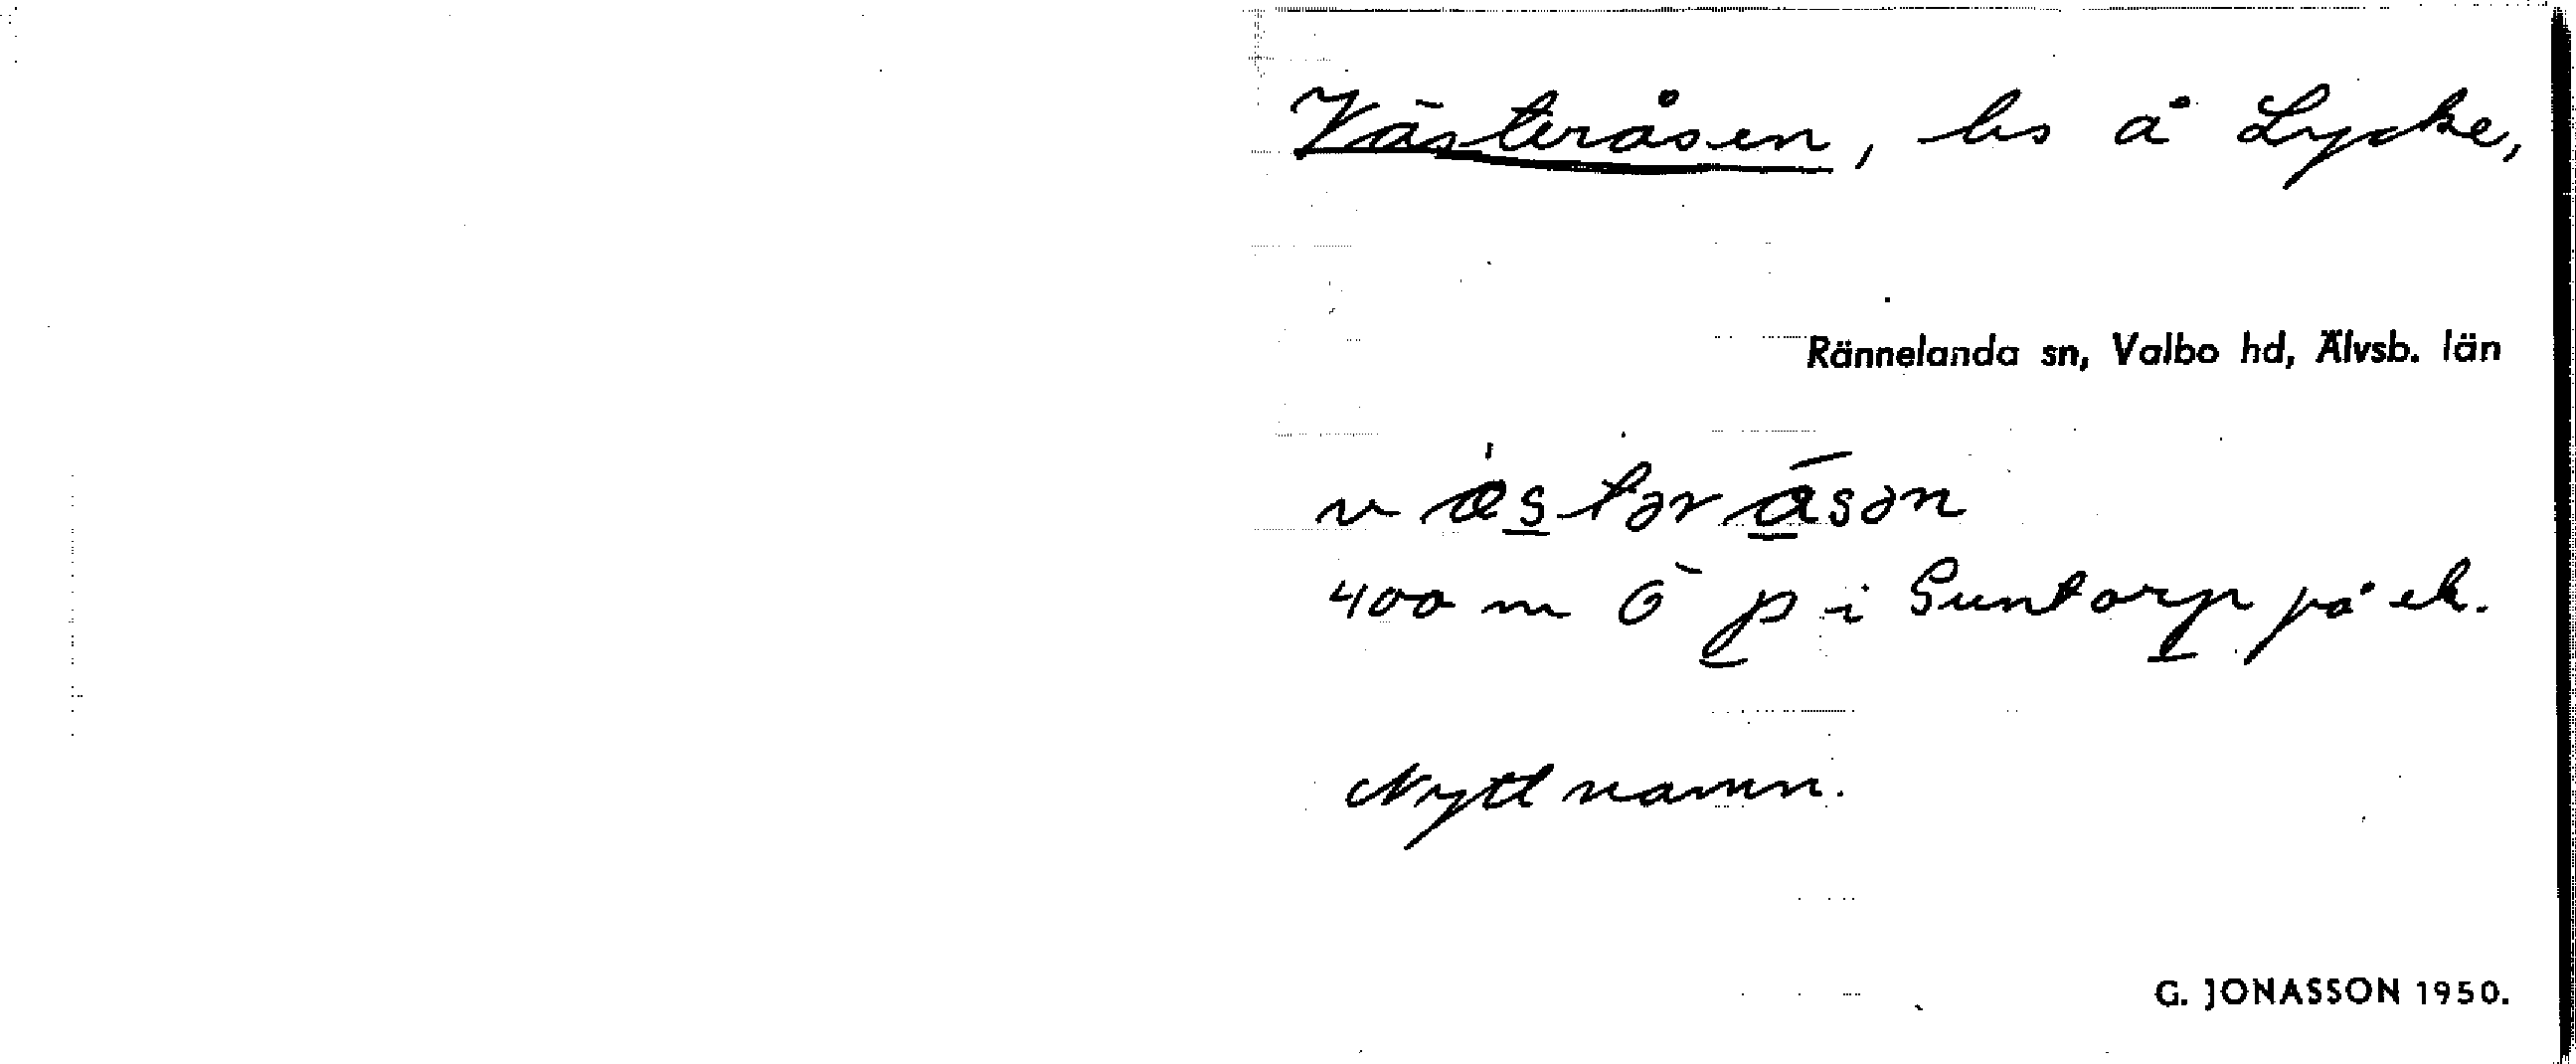 Västeråsen, ls å Lycke,
Rännelanda sn, Valbo hd, Älvsb. län
væ̀stərāsən
400 m Ö p i Suntorp på ek.
Nytt namn.
G. JONASSON 1950.